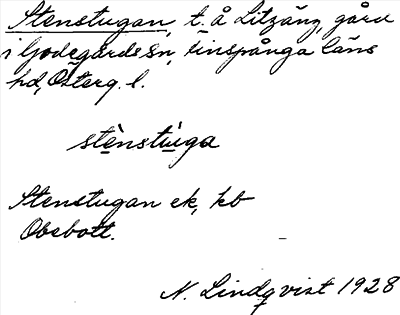 Stenstugan, t. å Litzäng, gård
i Godegårds sn, Finspånga läns
hd, Österg. l.
stènstù̶ga
Stenstugan ek, kb
Obebott.
N. Lindqvist 1928